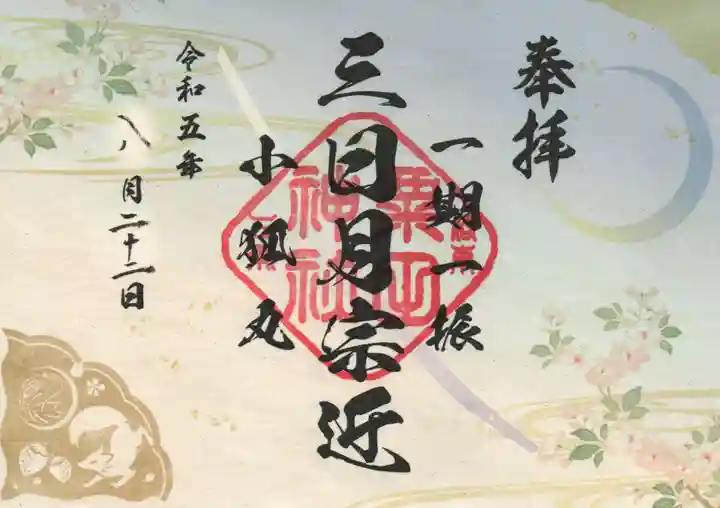 奉拝
一期一振
三日月宗近
小狐丸
令和五年
八月二十二日
粟田
神社